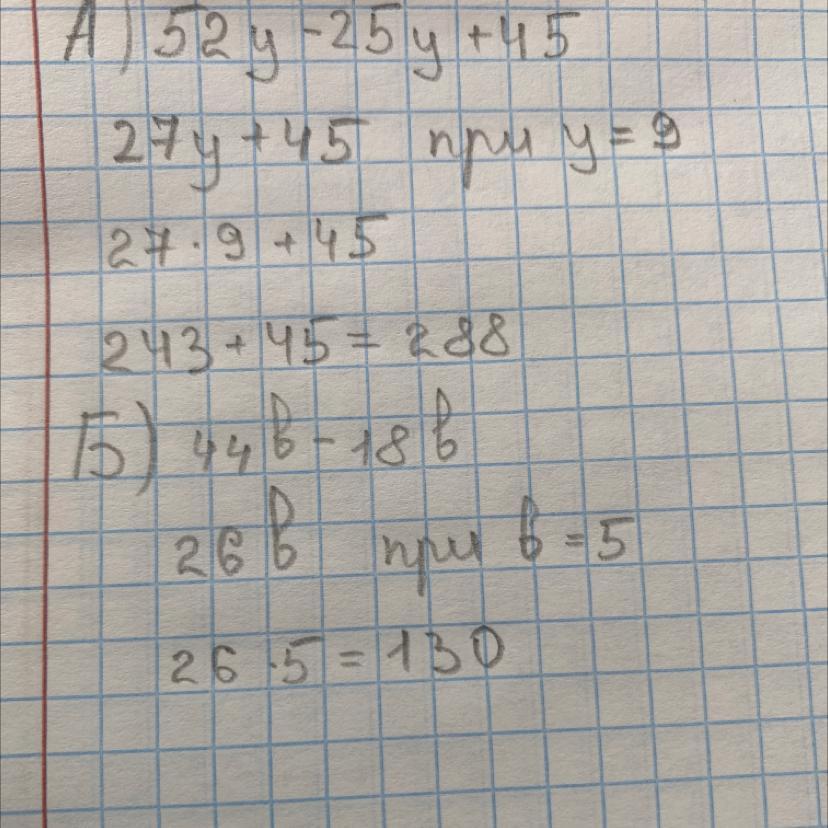 А) 52у - 25у + 45
27у + 45 при у = 9
27 · 9 + 45
243 + 45 = 288
Б) 44в - 18в
26в при в = 5
26 · 5 = 130